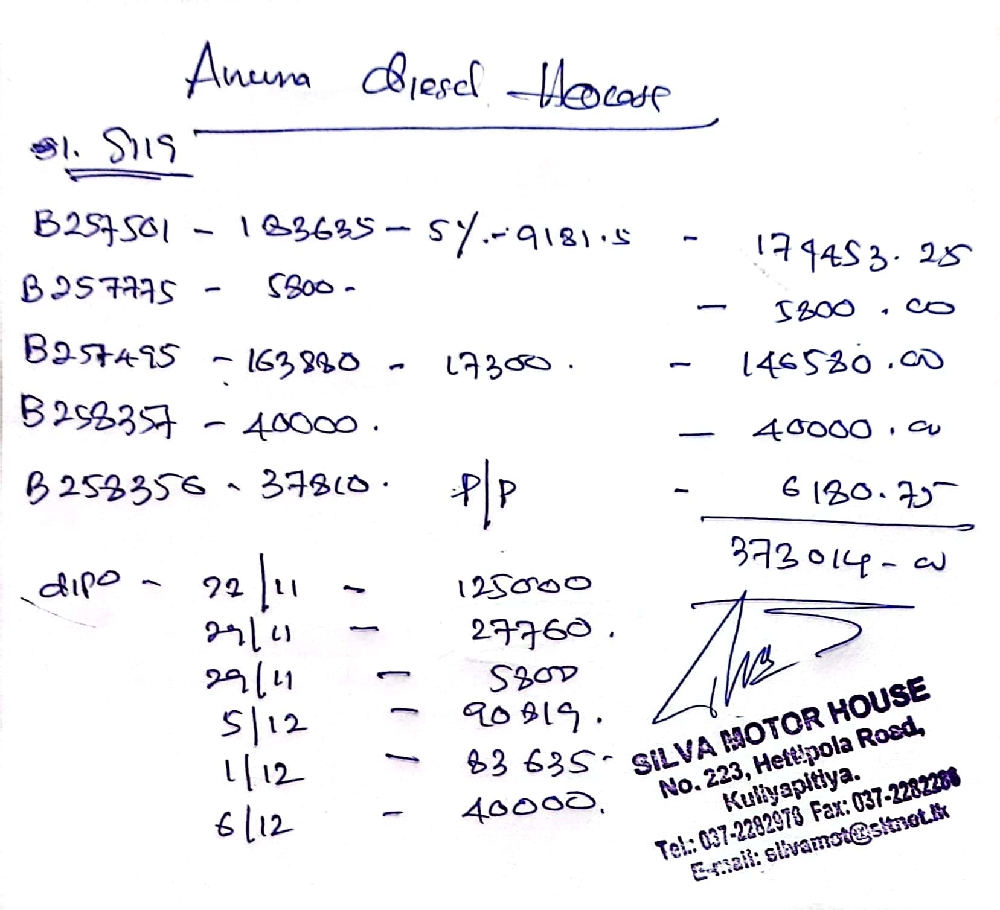 Anuna Diesel House
1. S119
B257501 - 183635 - 5% - 9181.5 - 174453.25
B257775 - 5800 - - 5800.00
B257495 - 163880 - 17300. - 146580.00
B258357 - 40000. - 40000.00
B258356 - 37810. P/P - 6180.75
373014-00
dipo - 22/11 - 125000
29/11 - 27760.
29/11 - 5800
5/12 - 90819.
1/12 - 83635-
6/12 - 40000.
SILVA MOTOR HOUSE
No. 223, Hettipola Road,
Kuliyapitiya.
Tel.: 037-2282978 Fax: 037-2282286
E-mail: silvamot@sltnet.lk